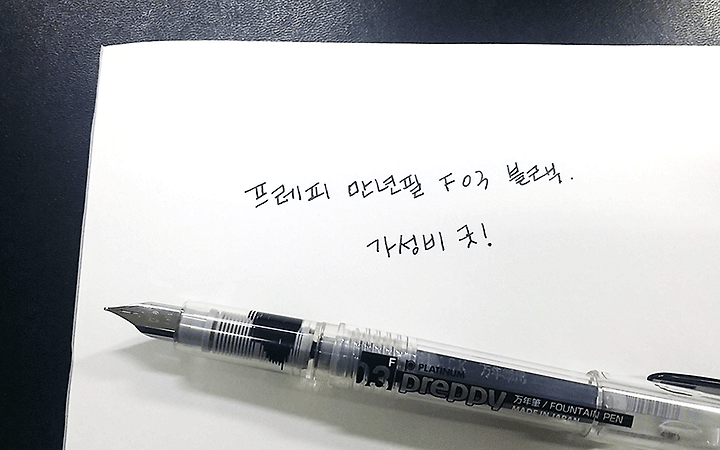 프레피 만년필 F 03 블랙.
가성비 굿!
F
03
PLATINUM
preppy
万年筆 / FOUNTAIN PEN
MADE IN JAPAN